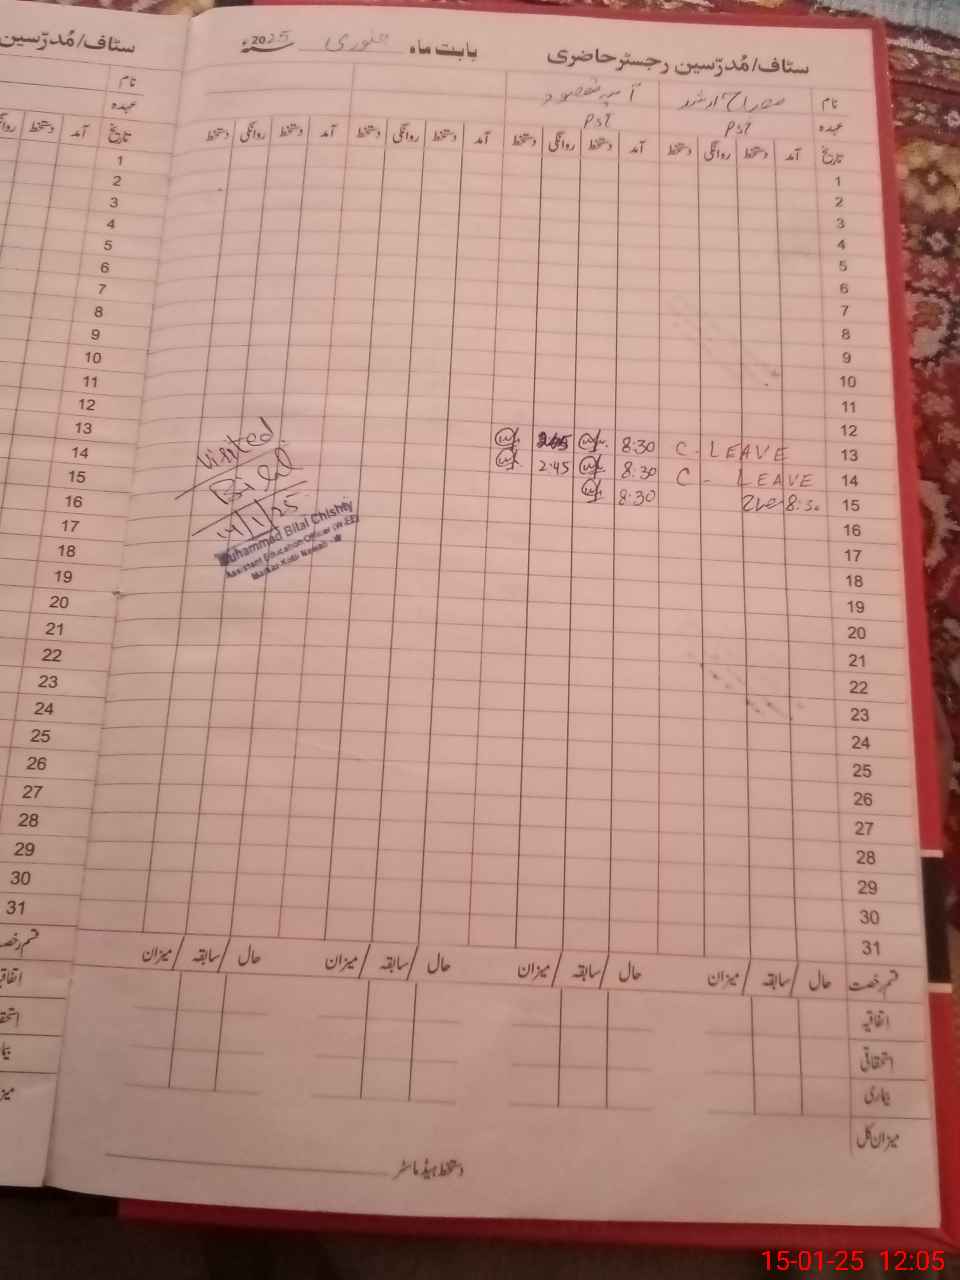 سٹاف/مُدرّسین رجسٹر حاضری بابت ماہ جنوری سنہ 2025ء
نام معراج ارشد آسیہ مقصود
عہدہ PST PST
تاریخ آمد دستخط روانگی دستخط آمد دستخط روانگی دستخط آمد دستخط روانگی دستخط آمد دستخط روانگی دستخط
1
2
3
4
5
6
7
8
9
10
11
12
13 C - LEAVE 8:30 2:45
14 C - LEAVE 8:30 2:45
15 8:30 8:30
16
17
18
19
20
21
22
23
24
25
26
27
28
29
30
31
قسم رخصت حال / سابقہ / میزان حال / سابقہ / میزان حال / سابقہ / میزان حال / سابقہ / میزان
اتفاقیہ
استحقاقی
بیماری
میزان کل
دستخط ہیڈ ماسٹر
Visited
Bilal
14/1/25
Muhammad Bilal Chishty
Assistant Education Officer (W-EE)
Markaz Kotli Nawab
سٹاف/مُدرّسین
نام
عہدہ
تاریخ آمد دستخط
1
2
3
4
5
6
7
8
9
10
11
12
13
14
15
16
17
18
19
20
21
22
23
24
25
26
27
28
29
30
31
15-01-25 12:05